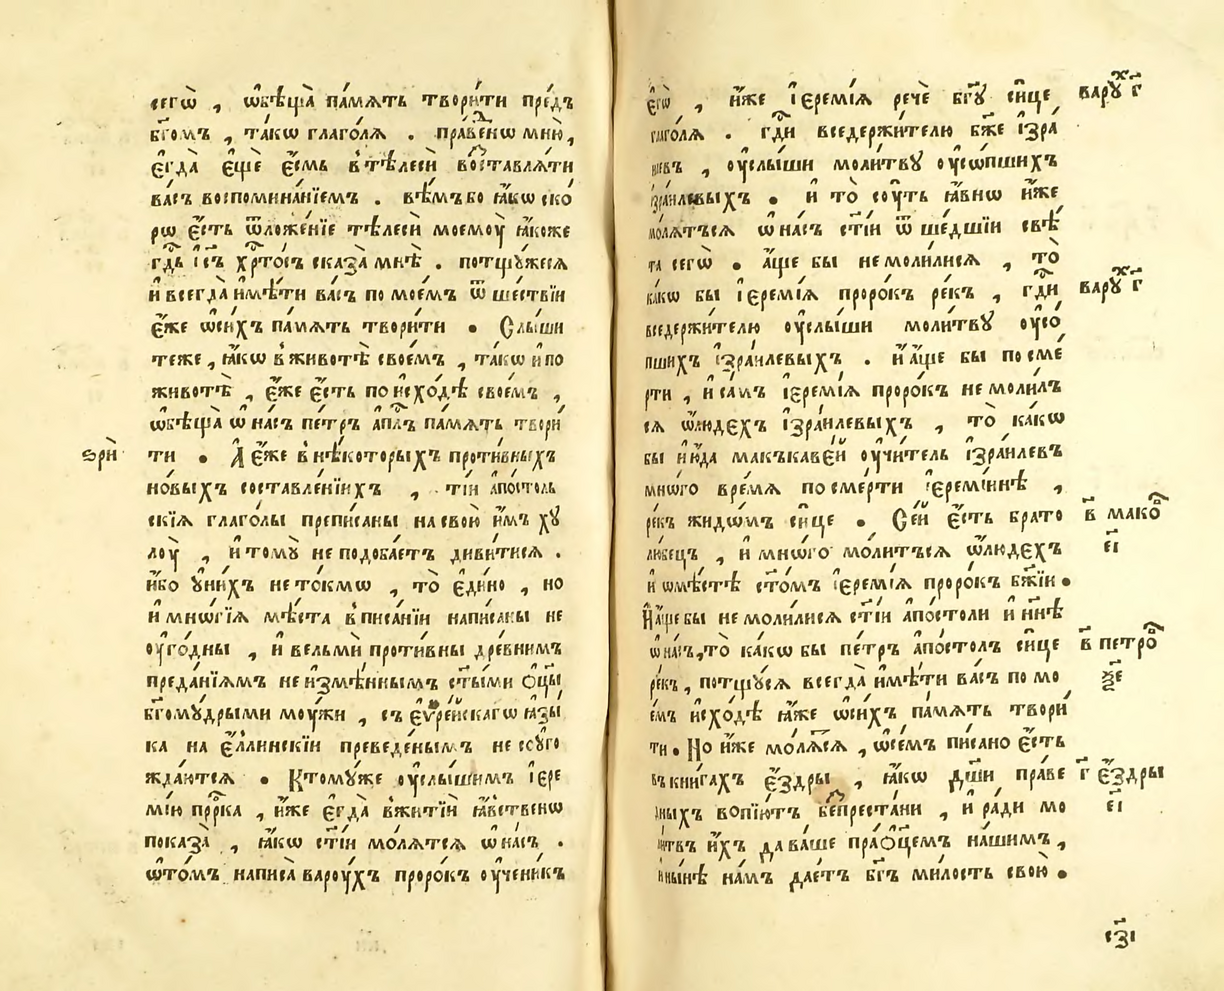 сегѡ̀ , ѡ҆бѣща̀ па́мѧть твори́ти пре́дъ
бг҃омъ , та́кѡ глаго́лѧ . пра́веⷣнѡ мню̀ ,
є҆гда̀ є҆щѐ є҆́смь в̾тѣлесѝ воⷥставлѧ́ти
ва́съ воспомина́нїемъ . вѣ́мъ бо ꙗ҆́кѡ ско
рѡ є҆́сть ѿложе́нїе тѣлесѝ моемоу̀ ꙗ҆́коже
гдⷭ҇ь і҆с҃ъ хрⷭ҇то́съ сказа̀ мнѣ̀ . потщꙋ́жесѧ
и҆ всегда̀ и҆мѣ́ти ва́съ по мое́мъ ѿ ше́ствїи
є҆́же ѡ҆си́хъ па́мѧть твори́ти . Слы́ши
те же , ꙗ҆́кѡ в̾животѣ̀ свое́мъ , та́кѡ и҆ по
животѣ̀ , є҆́же є҆́сть по и҆схо́дѣ свое́мъ ,
ѡ҆бѣща̀ ѡ҆ на́съ пе́тръ а҆пⷭ҇лъ па́мѧть твори́
ѕрѝ
ти . А҆ є҆́же в̾нѣ́которыхъ проти́вныхъ
но́выхъ составле́нїихъ , ті́и а҆по́столь
скїѧ глаго́лы препи́саны на свою̀ и҆́мъ хꙋ
лоу̀ , и҆ томꙋ̀ не подоба́етъ диви́тисѧ .
и҆́бо ᲂу҆ ни́хъ не то́кмѡ , то̀ є҆ди́но , но
и҆ мнѡ́гїѧ мѣ́ста в̾писа́нїи напи́саны не
ᲂу҆го́дны , и҆ вельмѝ проти́вны дре́внимъ
преда́нїѧмъ неизмѣ́ннымъ ст҃ы́ми ѻ҆ц҃ы̀
бг҃омꙋ́дрыми моу́жи , съ є҆ѵре́йскагѡ ꙗ҆зы́
ка на є҆́ллинскїи преведе́нымъ не ссꙋго
жда́ютсѧ . К томꙋ́же ᲂу҆слы́шимъ і҆ере
мі́ю прⷪ҇ро́ка , и҆́же є҆гда̀ в̾житїѝ ꙗ҆́вственѡ
показа̀ , ꙗ҆́кѡ ст҃і́и мо́лѧтсѧ ѡ҆ на́съ .
ѡ҆то́мъ написа̀ вароу́хъ проро́къ ᲂу҆чени́къ
є҆гѡ̀ , и҆́же і҆еремі́ѧ речѐ бг҃ꙋ си́це
варꙋⷯ г҃
глаго́лѧ . гдⷭ҇и вседержи́телю бж҃е і҆зра́
илевъ , ᲂу҆слы́ши моли́твꙋ ᲂу҆со́пшихъ
і҆зра́илевыхъ . и҆ то̀ соу́ть ꙗ҆́внѡ и҆́же
мо́лѧтъсѧ ѡ҆ на́съ ст҃і́и ѿ ше́дшїи свѣ́
та сегѡ̀ . а҆́ще бы не моли́лисѧ , то̀
ка́кѡ бы і҆еремі́ѧ проро́къ ре́къ , гдⷭ҇и
варꙋⷯ г҃
вседержи́телю ᲂу҆слы́ши моли́твꙋ ᲂу҆со́
пшихъ і҆зра́илевыхъ . и҆ а҆́ще бы по сме́
рти , и҆ са́мъ і҆еремі́ѧ проро́къ не моли́лъ
сѧ ѡ҆ лю́дехъ і҆зра́илевыхъ , то̀ ка́кѡ
бы і҆ю́да макъкаве́й ᲂу҆чи́тель і҆зра́илевъ
мно́го вре́мѧ по сме́рти і҆еремі́инѣ ,
ре́къ жидѡ́мъ си́це . Се́й є҆́сть брато
в҃ макоⷡ
любецъ , и҆ мно́го мо́литъсѧ ѡ҆ лю́дехъ
є҃і
и҆ ѡ҆ мѣ́стѣ ст҃о́мъ і҆еремі́ѧ проро́къ бж҃їи .
И҆ а҆́ще бы не моли́лисѧ ст҃і́и а҆по́столи и҆ нн҃ѣ
ѡ҆ на́съ , то̀ ка́кѡ бы пе́тръ а҆по́столъ си́це
в҃ петроⷡ
ре́къ , потщꙋ́сѧ всегда̀ и҆мѣ́ти ва́съ по мо
ѯ҃е
е́мъ и҆схо́дѣ ꙗ҆́же ѡ҆си́хъ па́мѧть твори́
ти . Но и҆́же мо́лѧⷮсѧ , ѡ҆ се́мъ пи́сано є҆́сть
въ кни́гахъ є҆́здры , ꙗ҆́кѡ дш҃и пра́ве
г҃ є҆́здры
дныхъ вопїю́тъ беⷥпреста́ни , и҆ ра́ди мо
є҃і
ли́твъ и҆́хъ дава́ше пра́ѻц҃емъ на́шимъ ,
и҆ ны́нѣ на́мъ дае́тъ бг҃ъ ми́лость свою̀ .
сѯ҃і